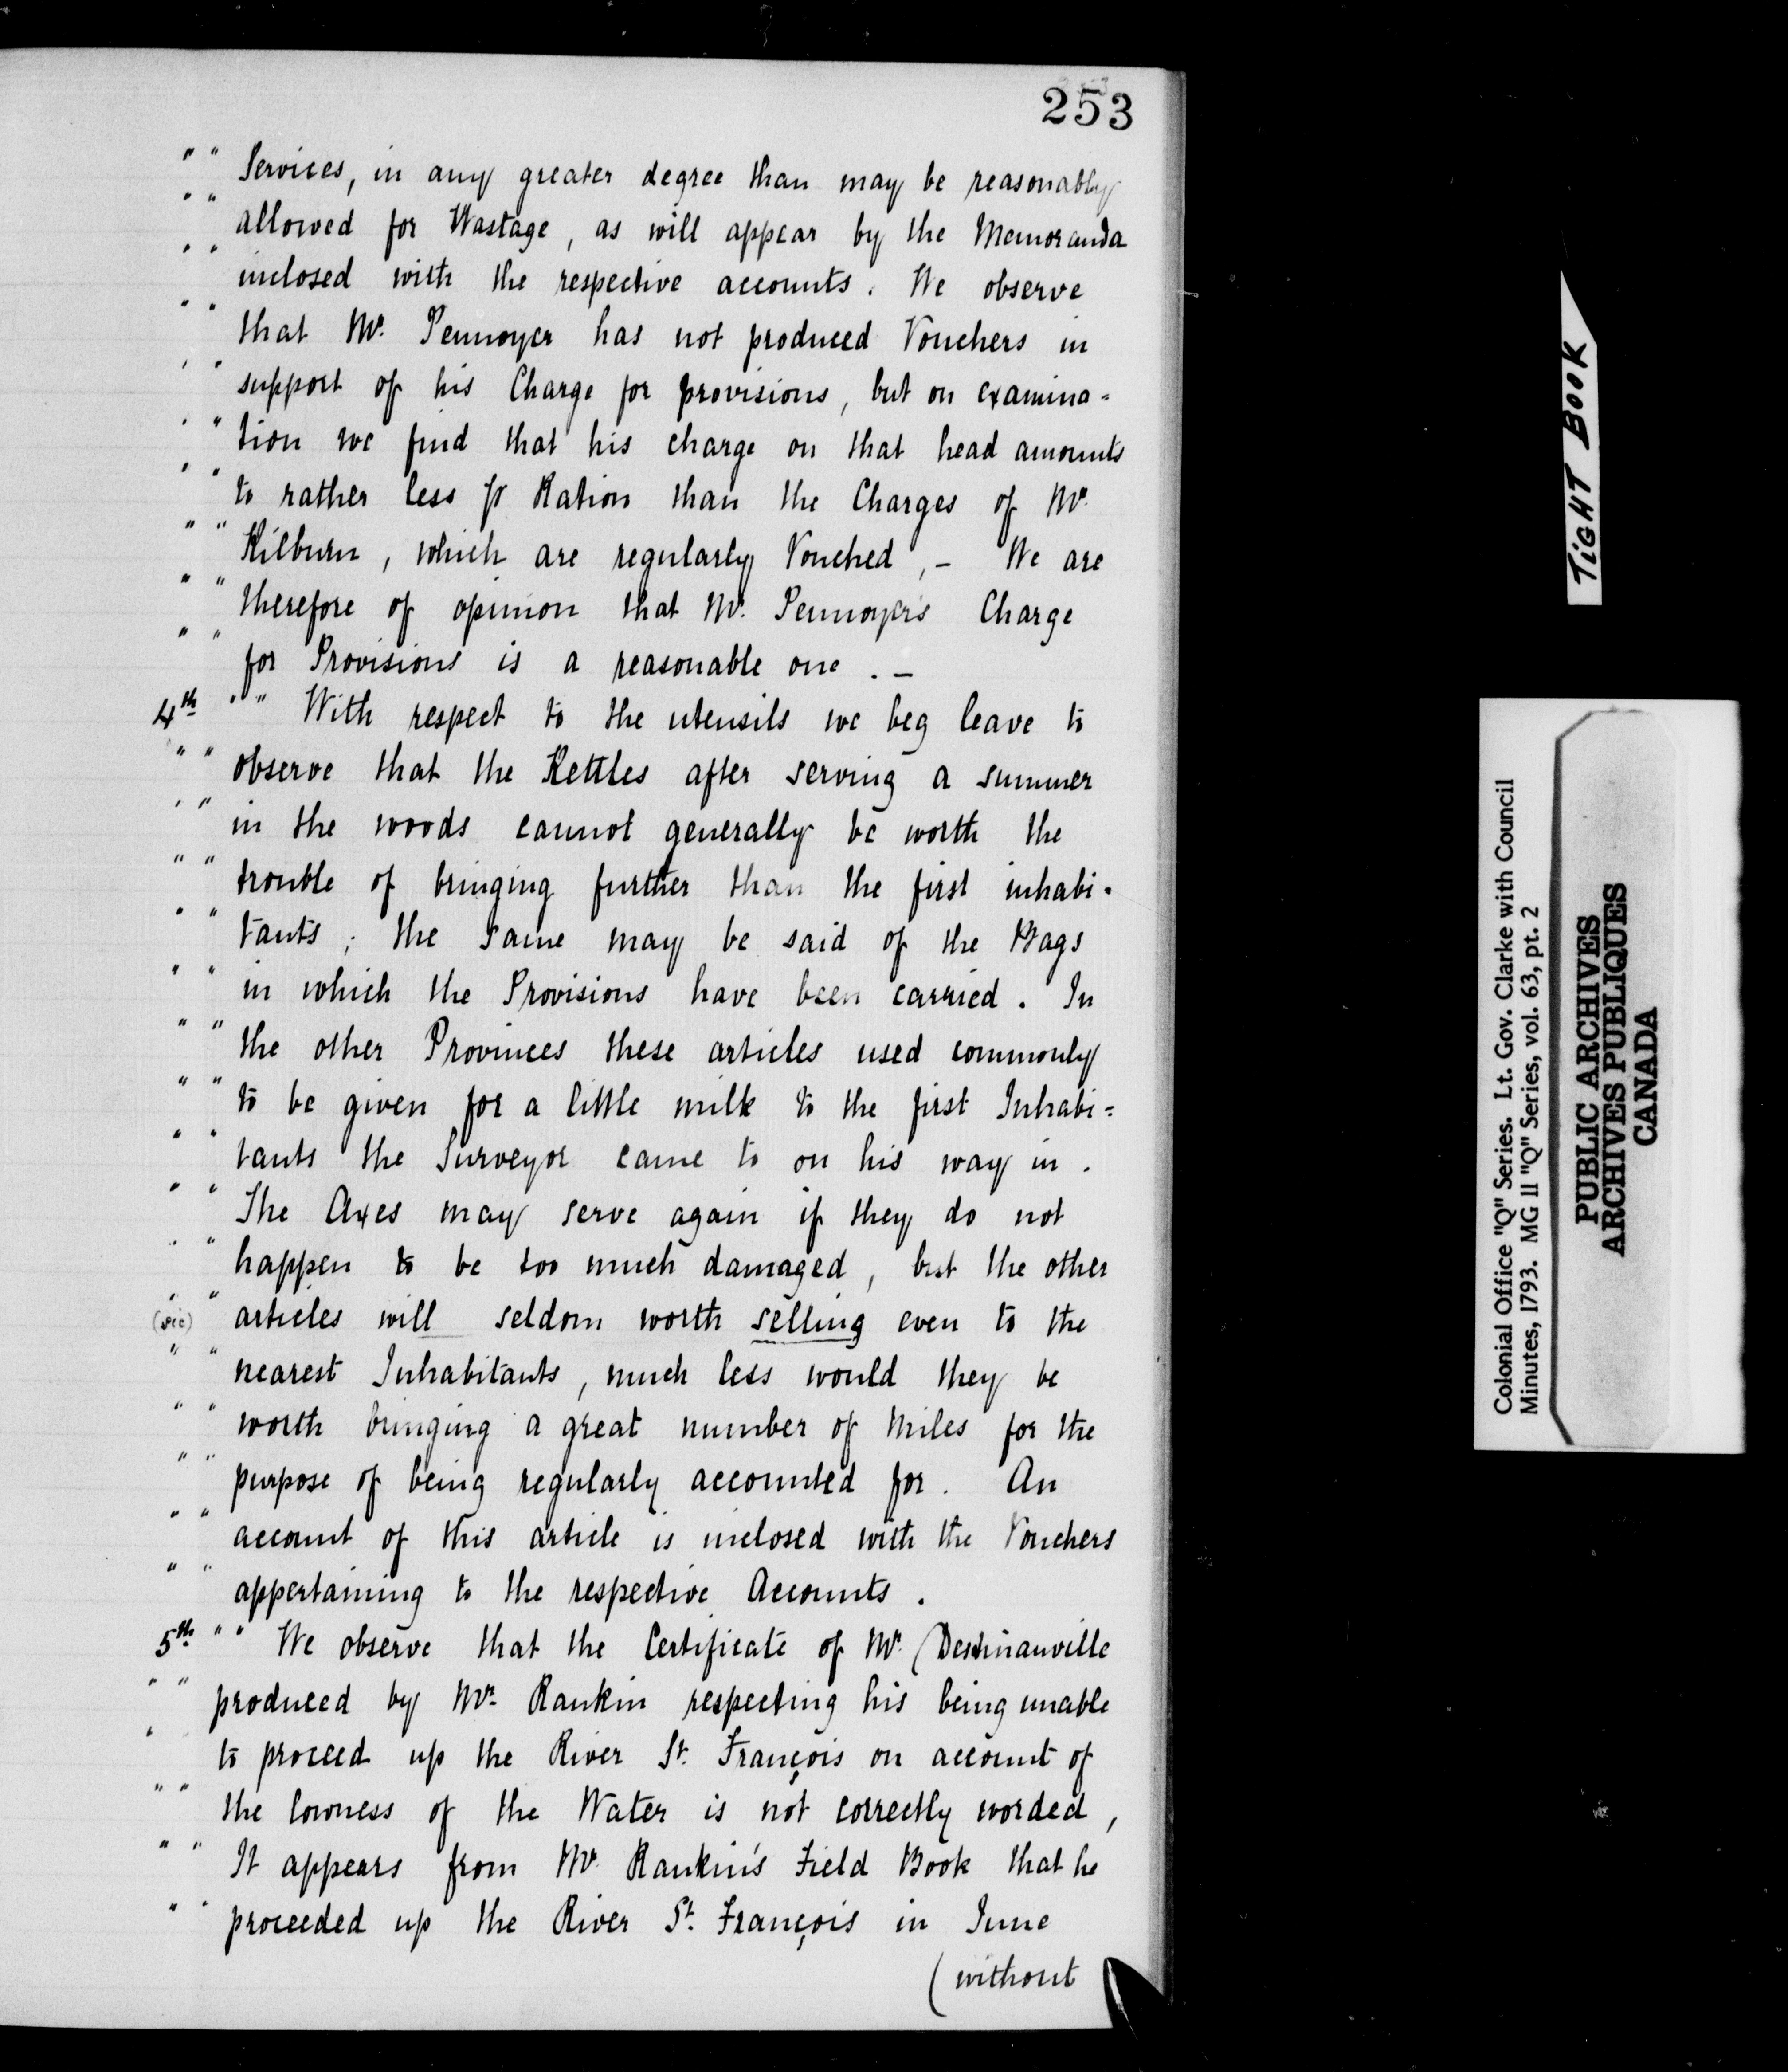 253
" " Services, in any greater degree than may be reasonably
" " allowed for Wastage, as will appear by the Memoranda
" " inclosed with the respective accounts. We observe
" " that Mr. Pennoyer has not produced Vouchers in
" " support of his Charge for provisions, but on examina-
" " tion we find that his charge on that head amounts
" " to rather less pr Ration than the Charges of Mr.
" " Kilburn, which are regularly Vouched, – We are
" " therefore of opinion that Mr. Pennoyer's Charge
" " for Provisions is a reasonable one. –
4th. " " With respect to the utensils we beg leave to
" " observe that the Kettles after serving a summer
" " in the woods cannot generally be worth the
" " trouble of bringing further than the first inhabi-
" " tants; the same may be said of the Bags
" " in which the Provisions have been carried. In
" " the other Provinces these articles used commonly
" " to be given for a little milk to the first Inhabi=
" " tants the Surveyor came to on his way in.
" " The Axes may serve again if they do not
" " happen to be too much damaged, but the other
(sic) " articles will seldom worth selling even to the
" " nearest Inhabitants, much less would they be
" " worth bringing a great number of miles for the
" " purpose of being regularly accounted for. An
" " account of this article is inclosed with the Vouchers
" " appertaining to the respective Accounts.
5th. " " We observe that the Certificate of Mr.
" " produced by Mr. Rankin respecting his being unable
" to proceed up the River St. François on account of
" " the lowness of the Water is not correctly worded,
" " It appears from Mr. Rankin's Field Book that he
" " proceeded up the River St. François in June
(without
TIGHT BOOK
Colonial Office "Q" Series. Lt. Gov. Clarke with Council
Minutes, 1793. MG 11 "Q" Series, vol. 63, pt. 2
PUBLIC ARCHIVES
ARCHIVES PUBLIQUES
CANADA